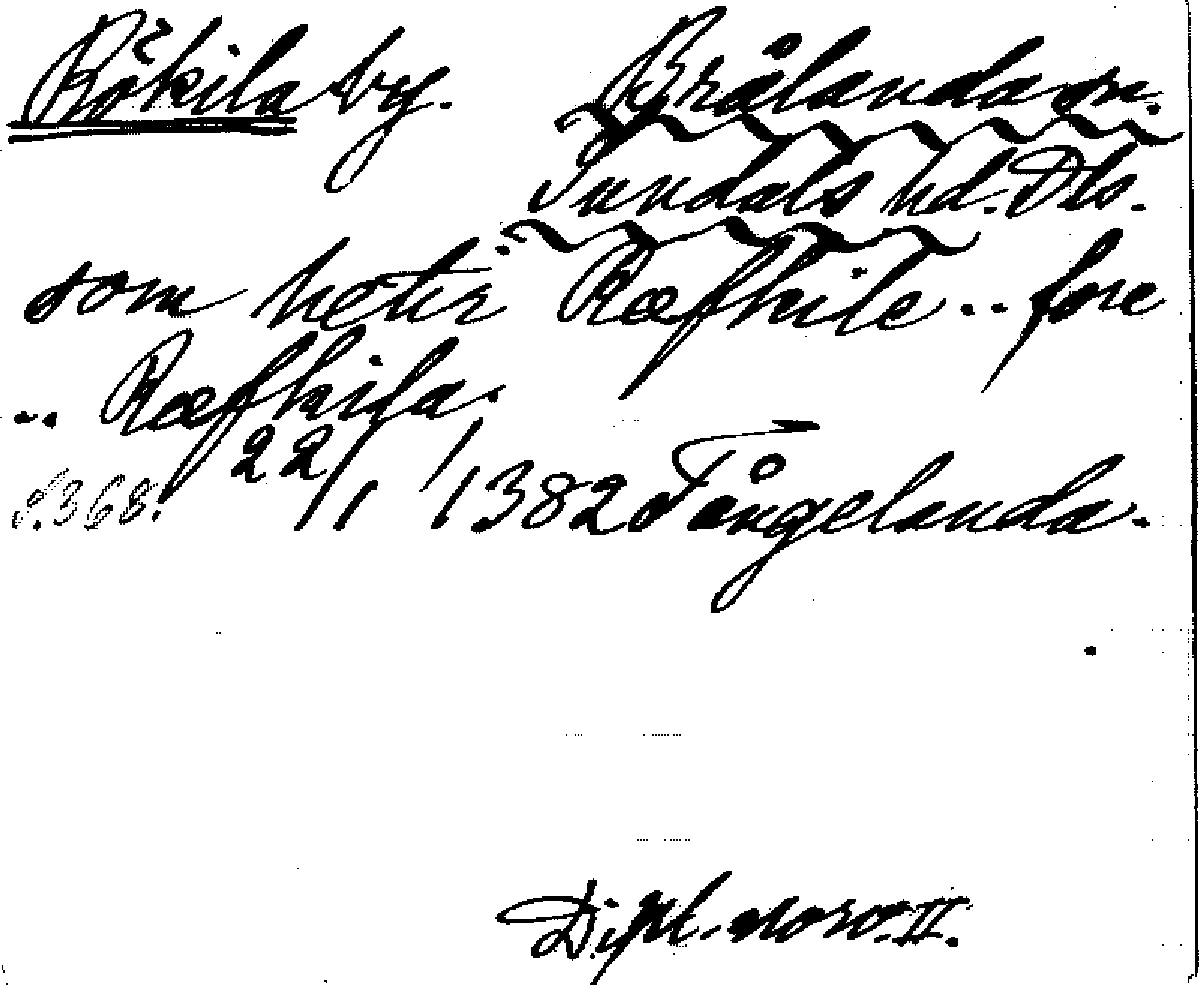 Rökila by. Brålanda sn.
Sundals hd. Dls.
som heter Ræfhile .. fore
.. Ræfkila.
s.368. 22/1 1382 Fångelanda.
Dipl. norv. II.